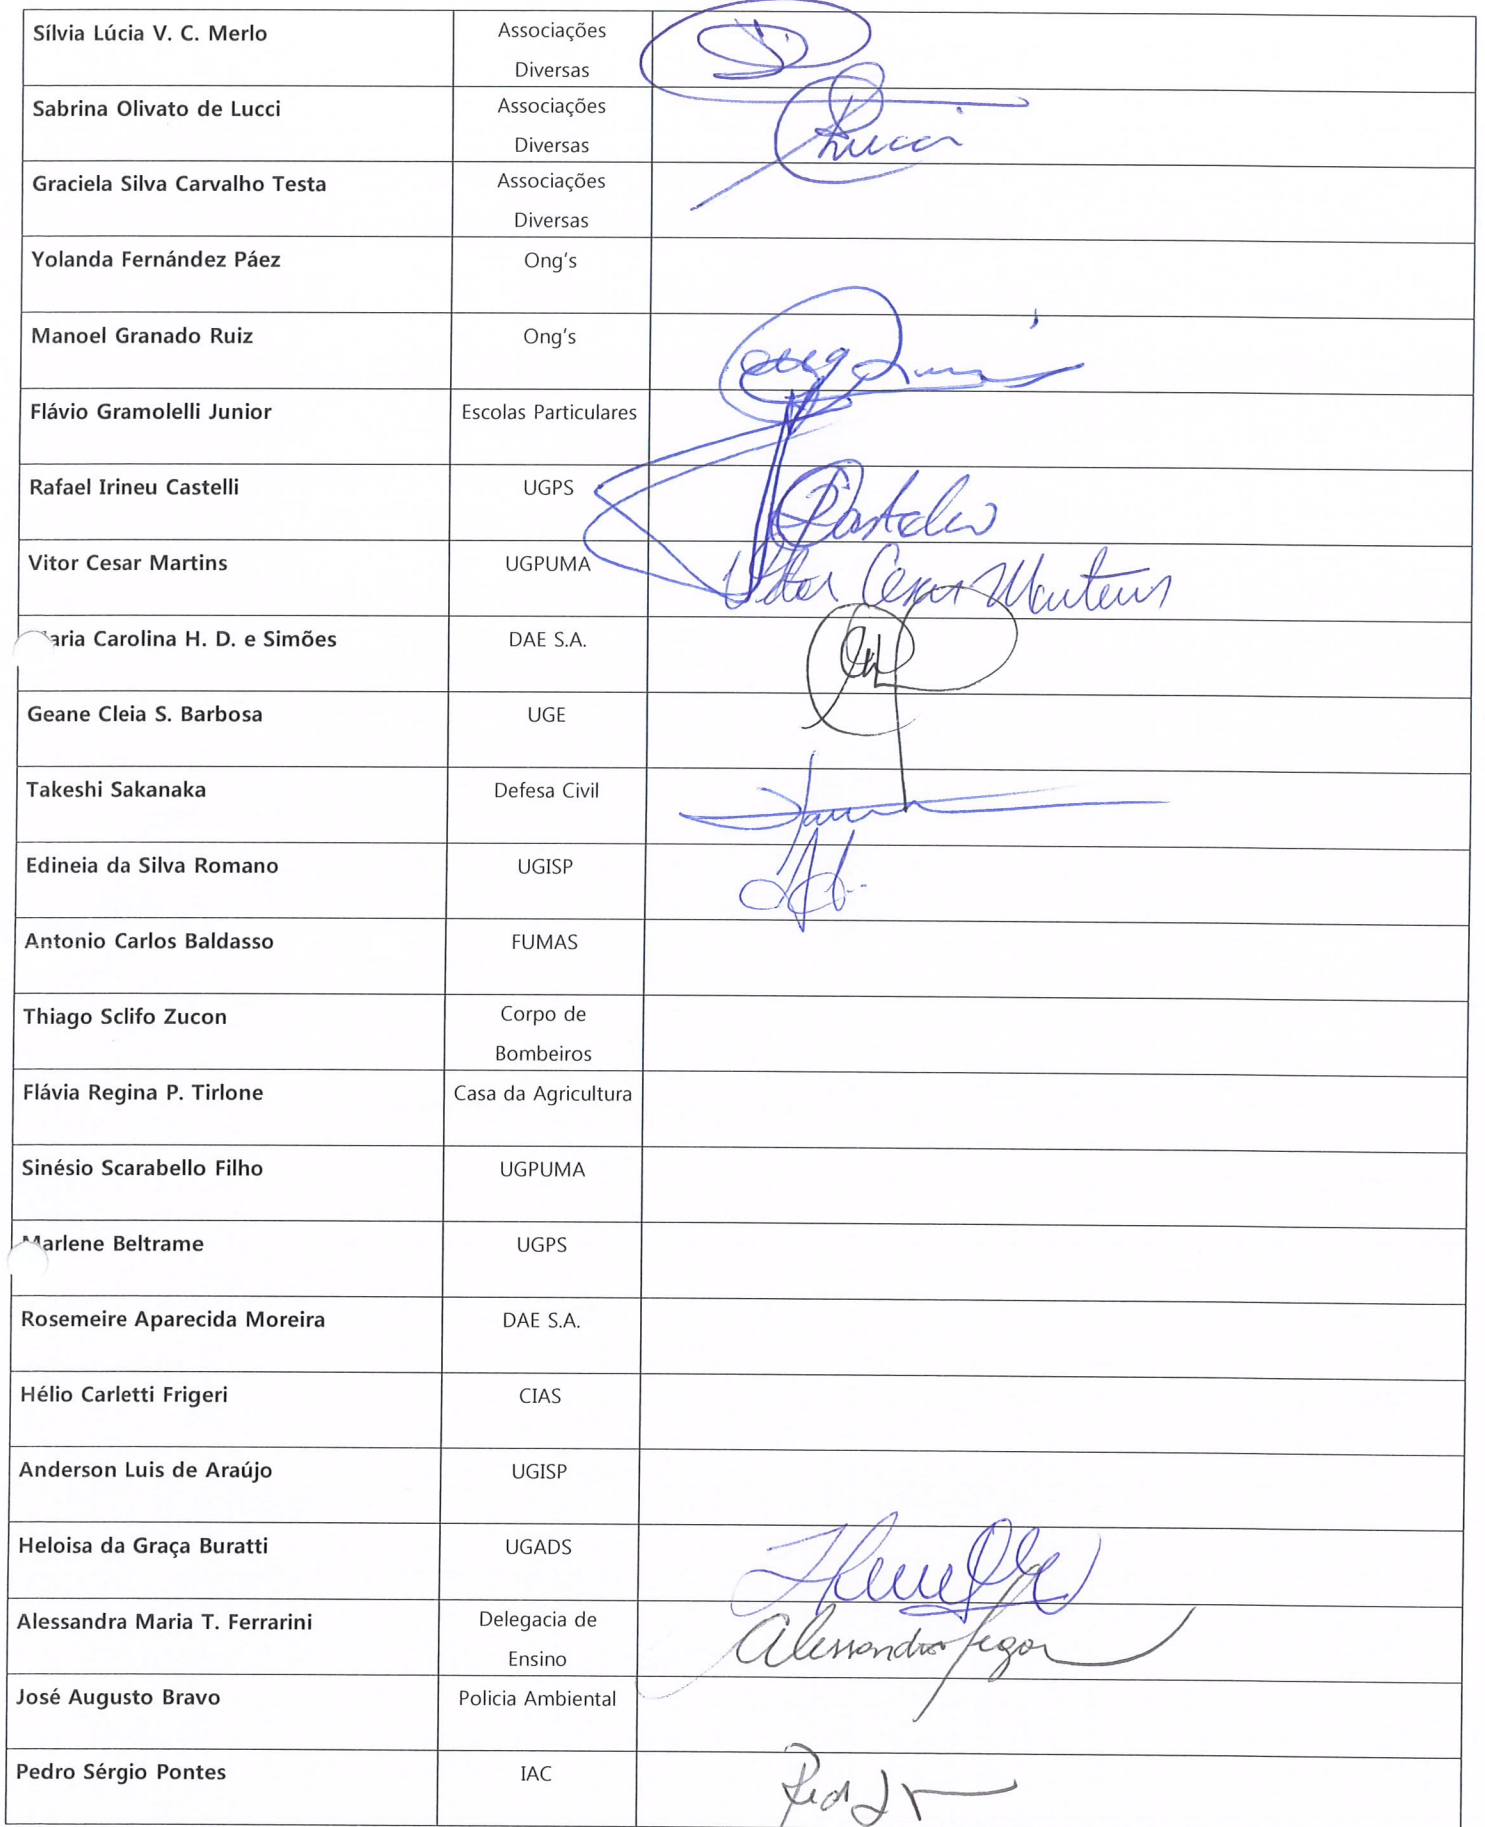 Sílvia Lúcia V. C. Merlo
Associações
Diversas
Sabrina Olivato de Lucci
Associações
Diversas
Lucci
Graciela Silva Carvalho Testa
Associações
Diversas
Yolanda Fernández Páez
Ong's
Manoel Granado Ruiz
Ong's
Flávio Gramolelli Junior
Escolas Particulares
Rafael Irineu Castelli
UGPS
Vitor Cesar Martins
UGPUMA
Vitor Cesar Martins
aria Carolina H. D. e Simões
DAE S.A.
Geane Cleia S. Barbosa
UGE
Takeshi Sakanaka
Defesa Civil
Edineia da Silva Romano
UGISP
Antonio Carlos Baldasso
FUMAS
Thiago Sclifo Zucon
Corpo de
Bombeiros
Flávia Regina P. Tirlone
Casa da Agricultura
Sinésio Scarabello Filho
UGPUMA
Marlene Beltrame
UGPS
Rosemeire Aparecida Moreira
DAE S.A.
Hélio Carletti Frigeri
CIAS
Anderson Luis de Araújo
UGISP
Heloisa da Graça Buratti
UGADS
Alessandra Maria T. Ferrarini
Delegacia de
Ensino
Alessandra
José Augusto Bravo
Policia Ambiental
Pedro Sérgio Pontes
IAC